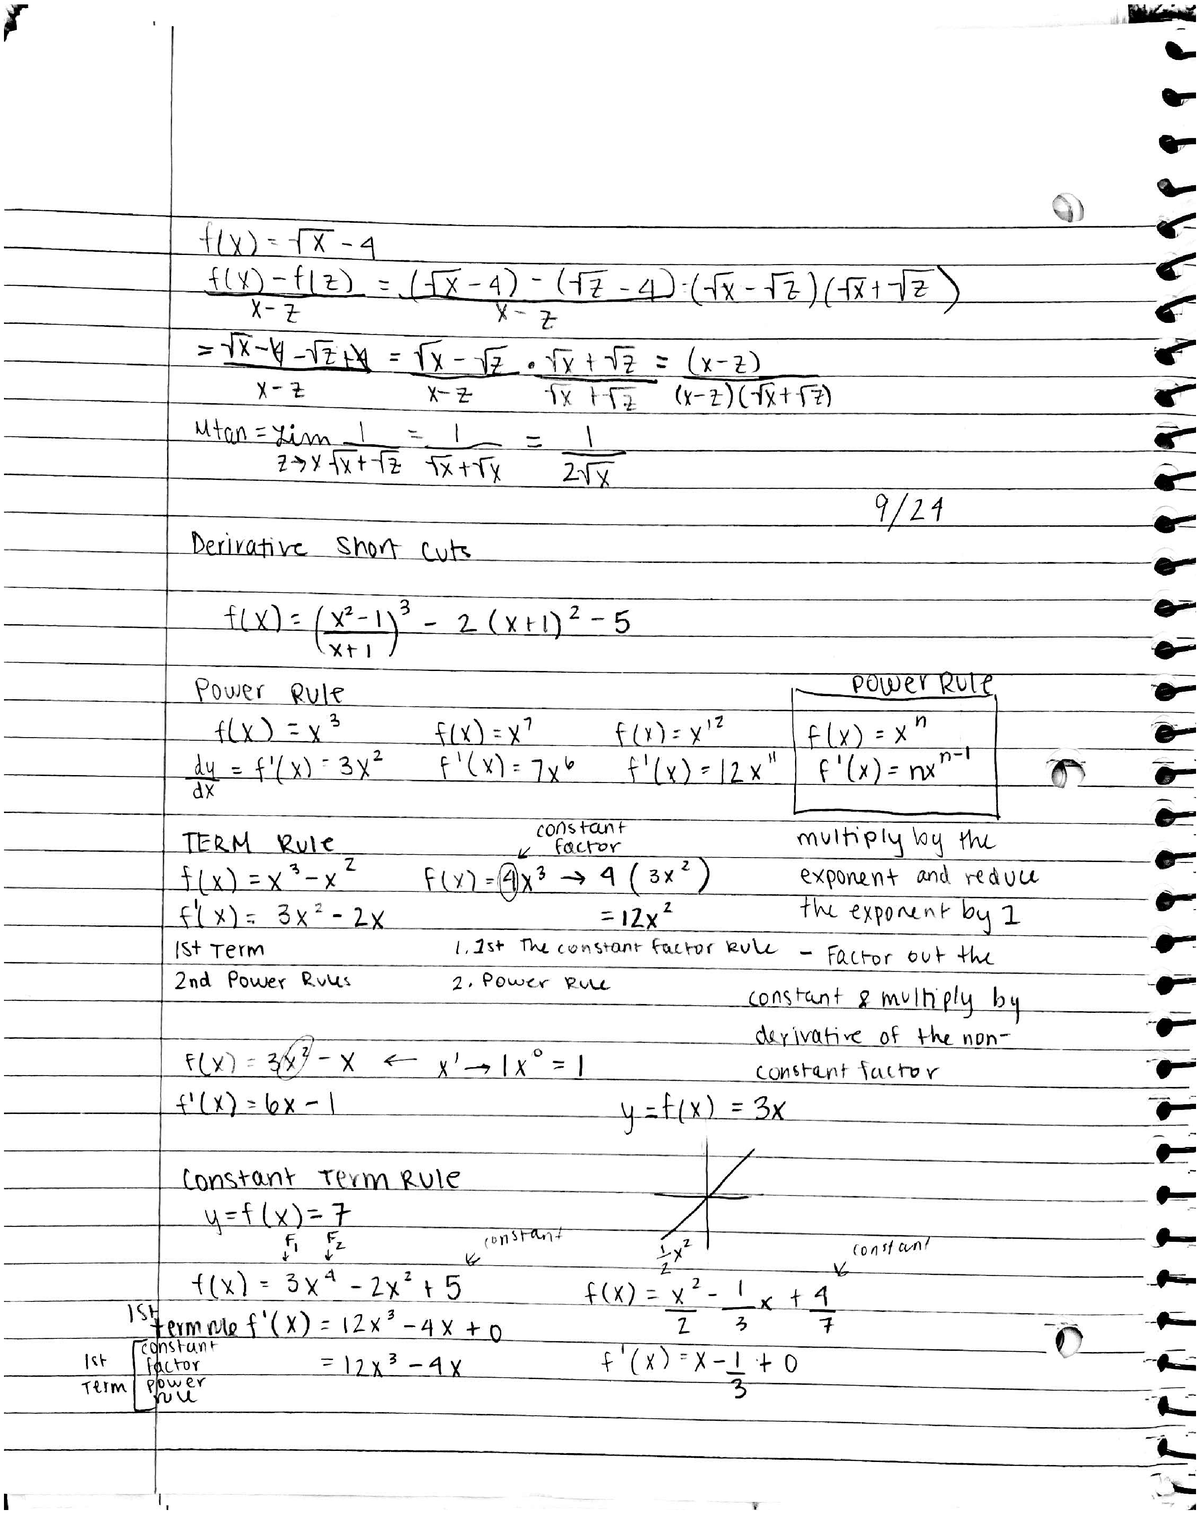 f(x) = √x - 4
f(x) - f(z) / x - z = (√x - 4) - (√z - 4) / x - z · (√x - √z)(√x + √z)
= √x - 4 - √z + 4 / x - z = √x - √z / x - z • √x + √z / √x + √z = (x - z) / (x - z)(√x + √z)
Mtan = Lim z→x 1 / √x + √z = 1 / √x + √x = 1 / 2√x
9/24
Derivative Short Cuts
f(x) = (x² - 1 / x + 1)³ - 2(x + 1)² - 5
Power Rule
f(x) = x³ f(x) = x⁷ f(x) = x¹²
dy/dx = f'(x) = 3x² f'(x) = 7x⁶ f'(x) = 12x¹¹
Power Rule
f(x) = xⁿ
f'(x) = nxⁿ⁻¹
multiply by the
exponent and reduce
the exponent by 1
TERM Rule
f(x) = x³ - x²
f'(x) = 3x² - 2x
1st Term
2nd Power Rules
constant
factor
f(x) = 4x³ → 4(3x²)
= 12x²
1. 1st The constant factor Rule - Factor out the
2. Power Rule
constant & multiply by
derivative of the non-
constant factor
f(x) = 3x² - x ← x' → 1x⁰ = 1
f'(x) = 6x - 1
y = f(x) = 3x
Constant Term Rule
y = f(x) = 7
F₁ F₂
↓ ↓
constant
f(x) = 3x⁴ - 2x² + 5
1st
term rule f'(x) = 12x³ - 4x + 0
= 12x³ - 4x
1st
Term
constant
factor
power
rule
½x²
constant
f(x) = x²/2 - 1/3 x + 4/7
f'(x) = x - 1/3 + 0